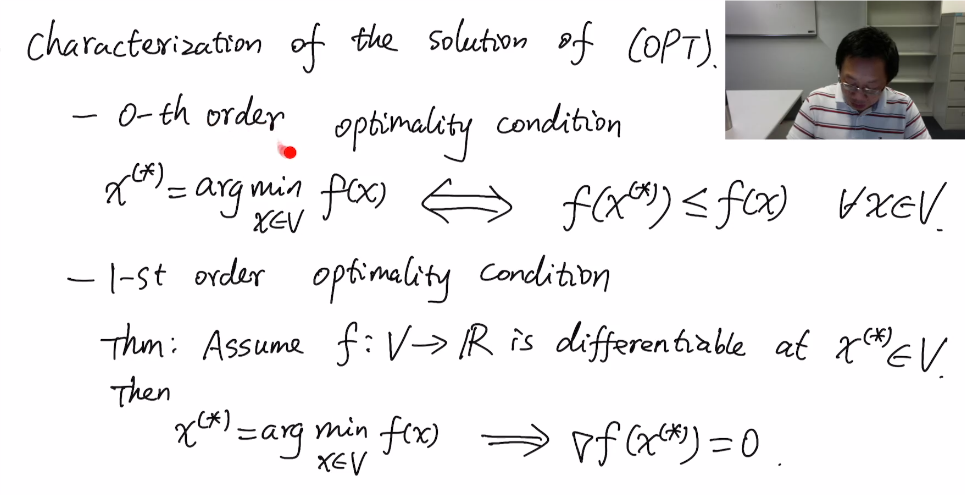 Characterization of the solution of (OPT).
- 0-th order optimality condition
x^(*) = arg min_{x∈V} f(x) ⟺ f(x^(*)) ≤ f(x) ∀x∈V.
- 1-st order optimality condition
Thm: Assume f: V→ℝ is differentiable at x^(*)∈V.
Then
x^(*) = arg min_{x∈V} f(x) ⟹ ∇f(x^(*)) = 0.